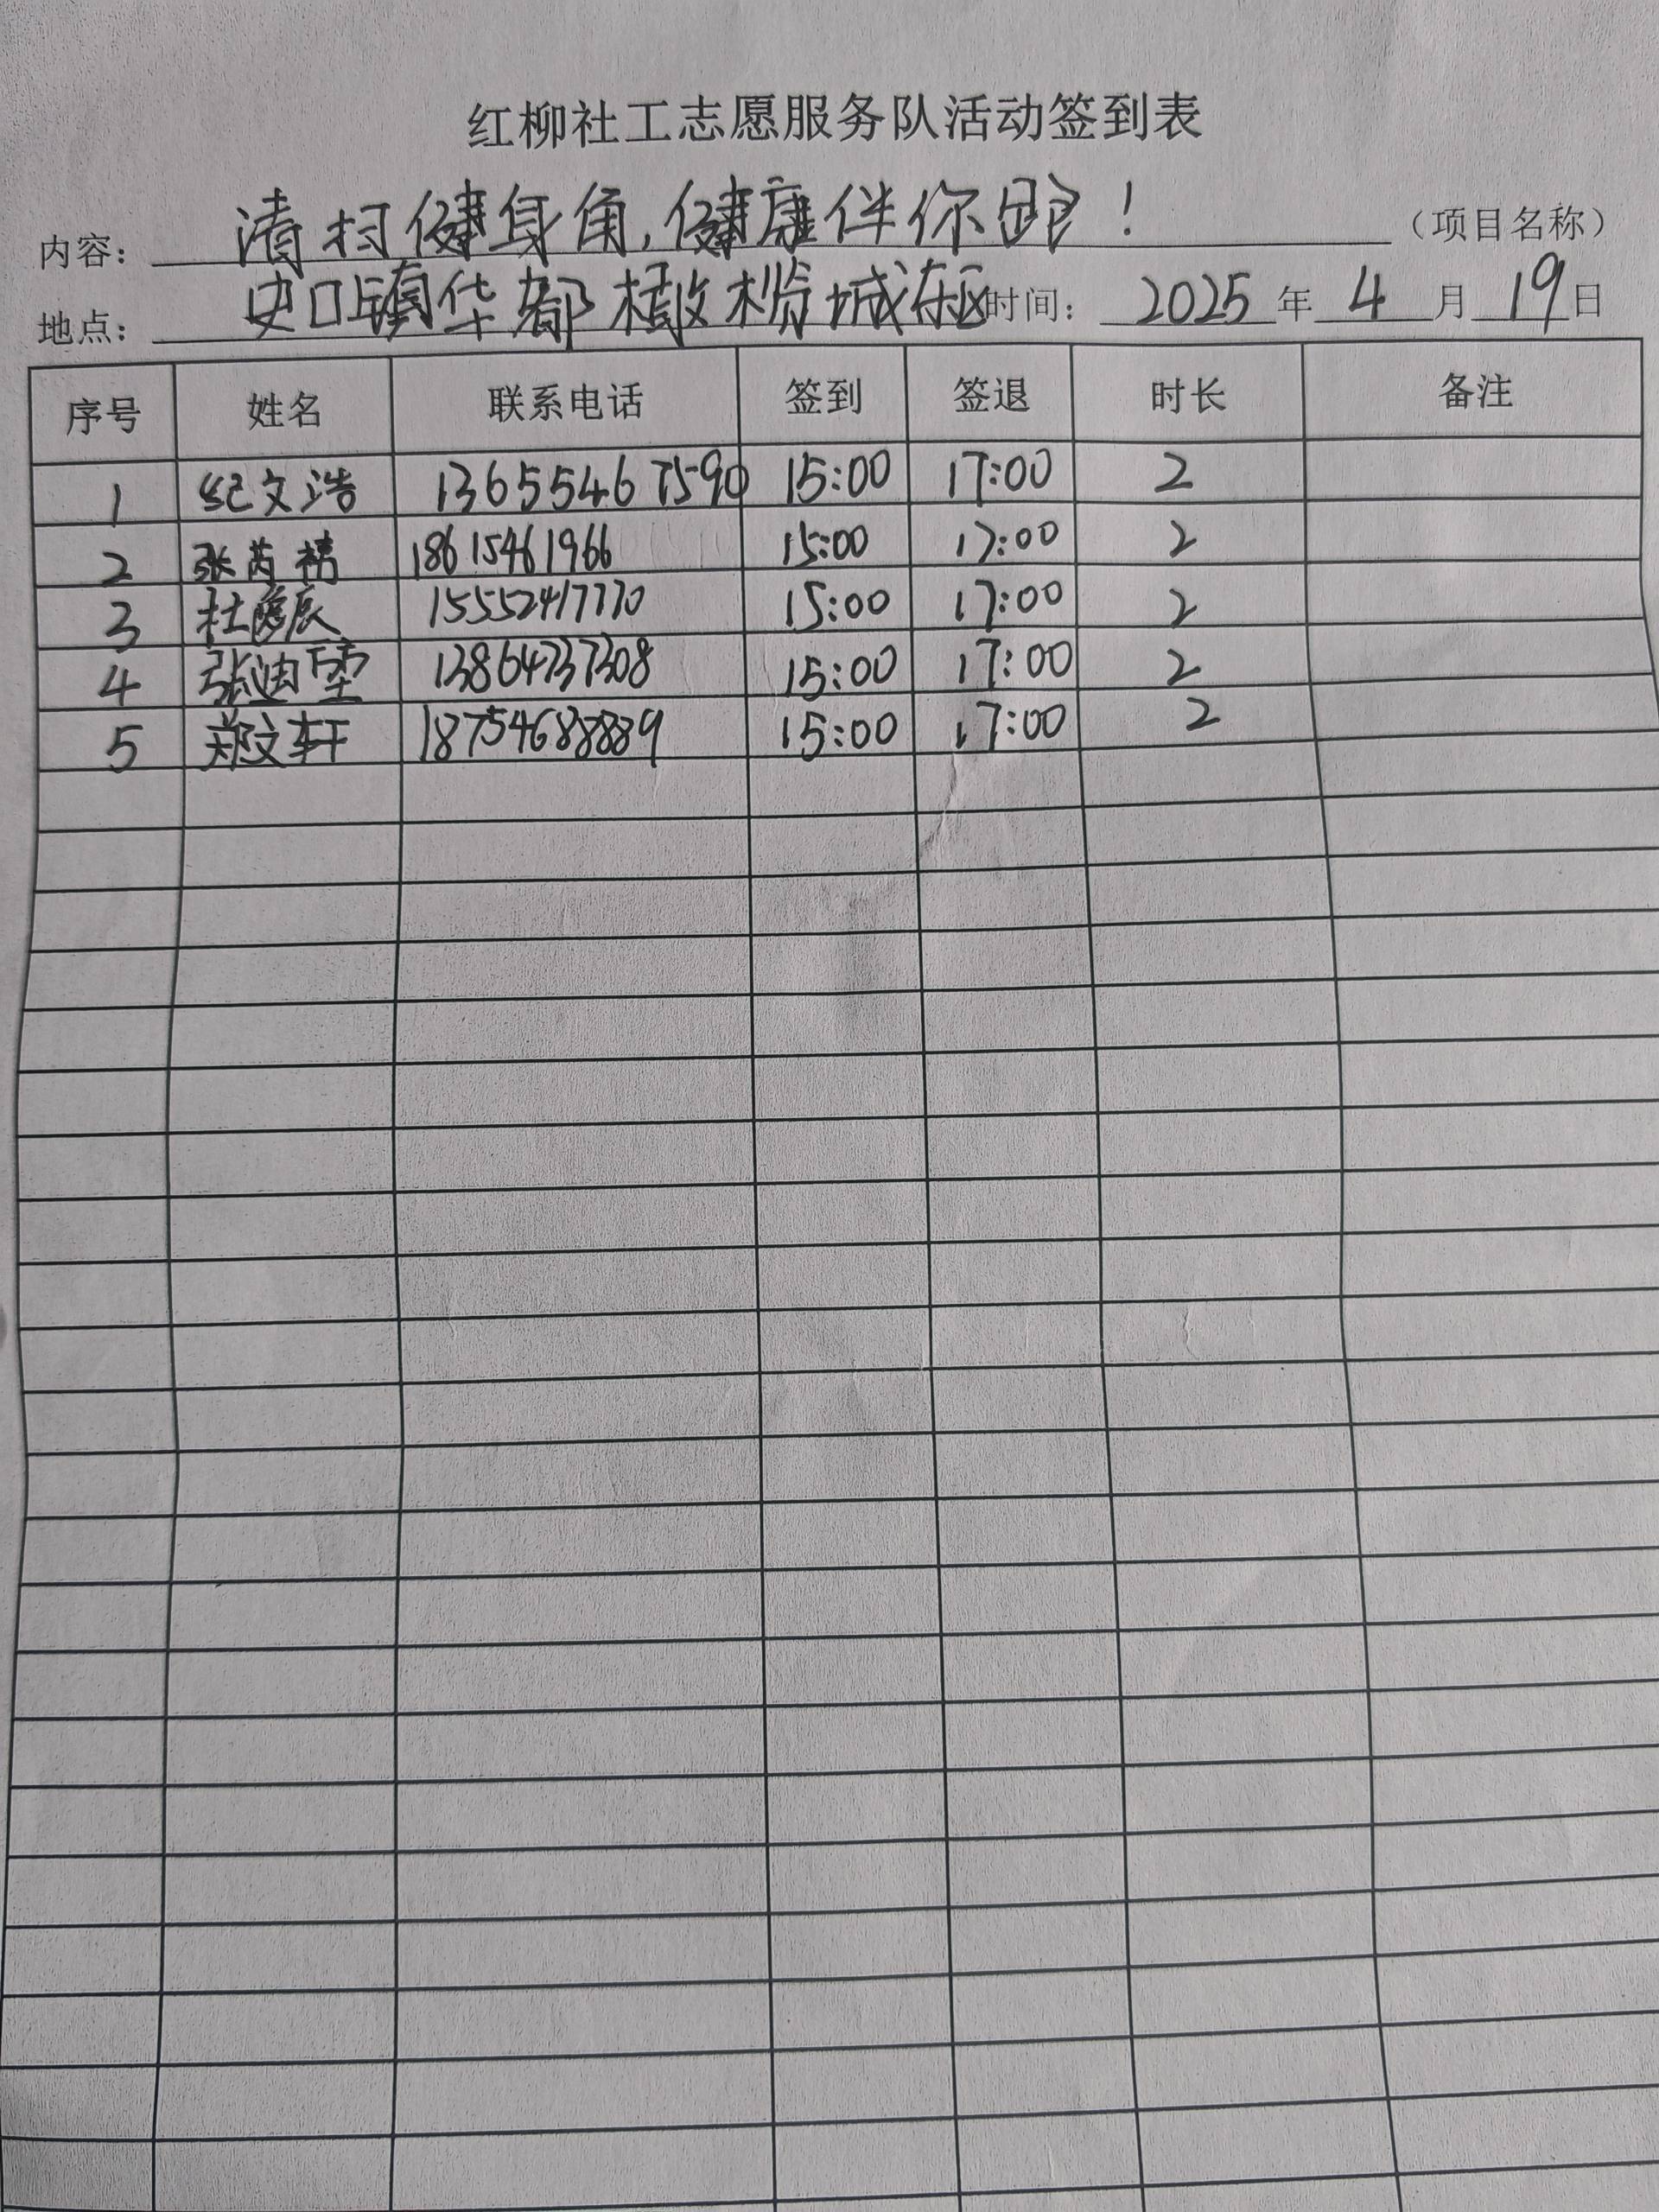 红柳社工志愿服务队活动签到表
内容： 清村健身角，健康伴你 ！ （项目名称）
地点： 史口镇华都橄榄城东区 时间： 2025 年 4 月 19 日
序号 姓名 联系电话 签到 签退 时长 备注
1 纪文浩 13655467590 15:00 17:00 2
2 张芮祺 18615461966 15:00 17:00 2
3 杜 辰 15552417770 15:00 17:00 2
4 张迪 13864737308 15:00 17:00 2
5 郑文轩 18754688889 15:00 17:00 2